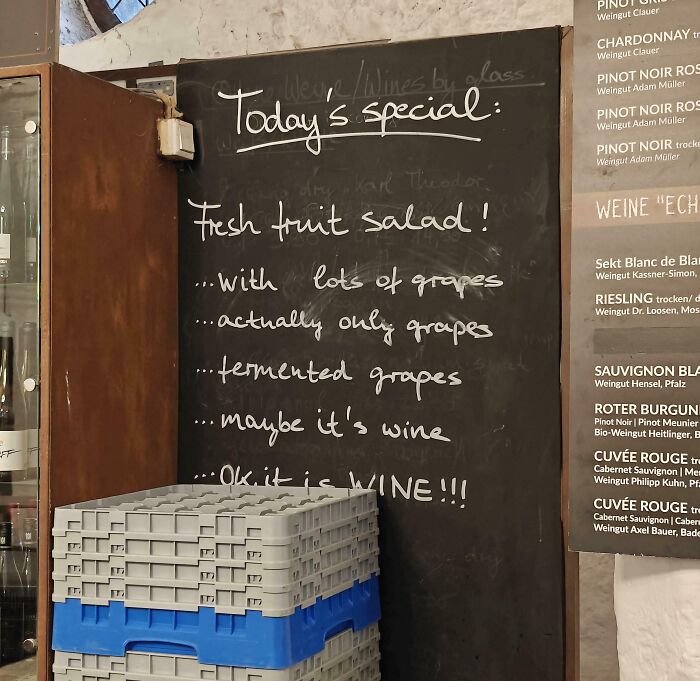 Today's special:
Fresh fruit salad!
...with lots of grapes
...actually only grapes
...fermented grapes
...maybe it's wine
...Ok, it is WINE!!!
Weine/Wines by glass
dry Karl Theodor
Weingut Clauer
CHARDONNAY
Weingut Clauer
PINOT NOIR
Weingut Adam Müller
PINOT NOIR
Weingut Adam Müller
PINOT NOIR trocken
Weingut Adam Müller
WEINE "ECH
Sekt Blanc de
Weingut Kassner-Simon,
RIESLING trocken/
Weingut Dr. Loosen,
SAUVIGNON
Weingut Hensel, Pfalz
ROTER
Pinot Noir | Pinot Meunier
Bio-Weingut Heitlinger,
CUVÉE ROUGE
Cabernet Sauvignon |
Weingut Philipp Kuhn,
CUVÉE ROUGE
Cabernet Sauvignon |
Weingut Axel Bauer,